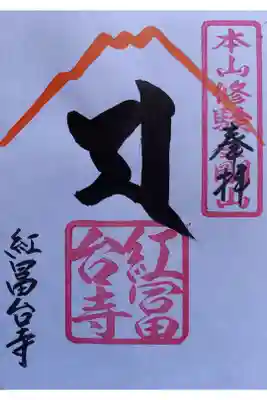 本山修験
奉拝
紅富
台寺
紅冨台寺